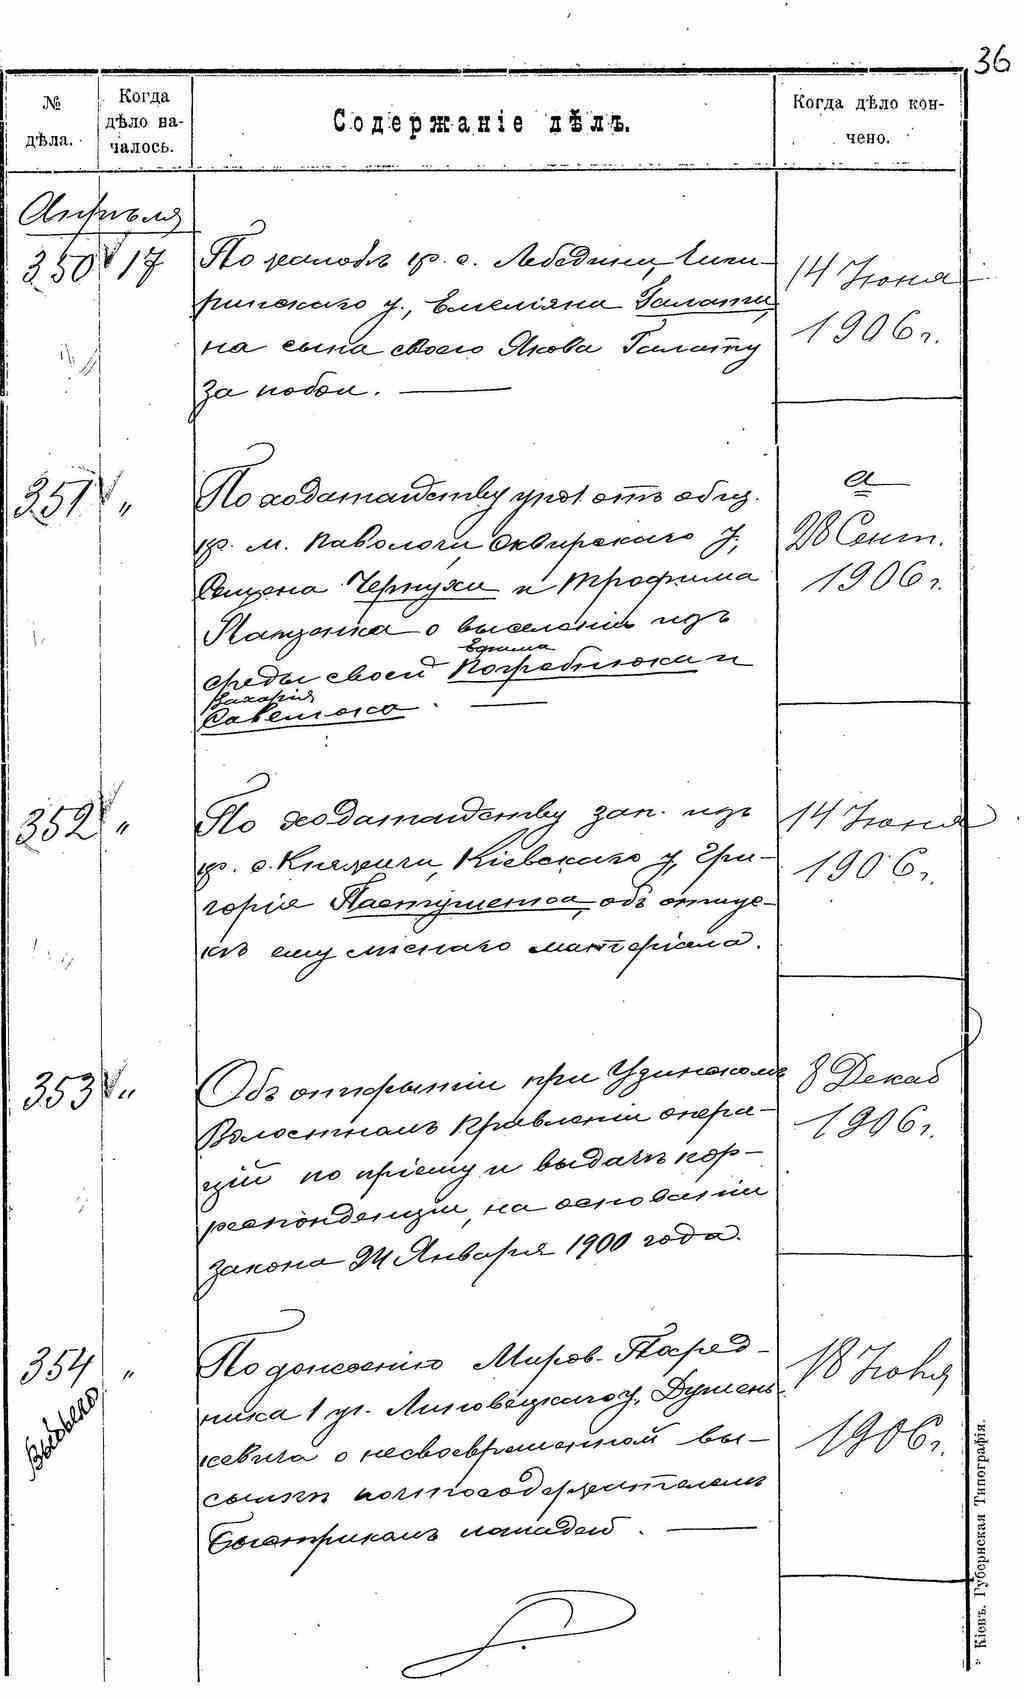 36
№ дѣла.
Когда дѣло началось.
Содержаніе дѣлъ.
Когда дѣло кончено.
Апрѣля
350 17
По жалобѣ кр. с. Лебедина, Чиги-
ринскаго у., Емеліяна Галаты,
на сына своего Якова Галату
за побои.
14 Іюня
1906 г.
351 "
По ходатайству упол отъ общ.
кр. м. Паволочи, Сквирскаго у.,
Семена Чернухи и Трофима
о выселеніи изъ
среды своей Ефима Погребнюка и
Захарія
Савелюка.
а
28 Сент.
1906 г.
352 "
По ходатайству зап. изъ
кр. с. Княжичи, Кіевскаго у, Гри-
горія Пастушенка, объ отпус-
кѣ ему лѣснаго матеріала.
14 Іюня
1906 г.
353 "
Объ открытіи при Узинскомъ
Волостномъ Правленіи опера-
цій по пріему и выдачѣ кор-
респонденціи, на основаніи
закона 24 Января 1900 года.
8 Декаб
1906 г.
354 "
Выбыло
По донесенію Миров. Посред-
ника 1 уч. Липовецкаго у,
о несвоевременной вы-
сылкѣ почтосодержателемъ
Быстрикомъ лошадей.
18 Іюня
1906 г.
Кіевъ. Губернская Типографія.